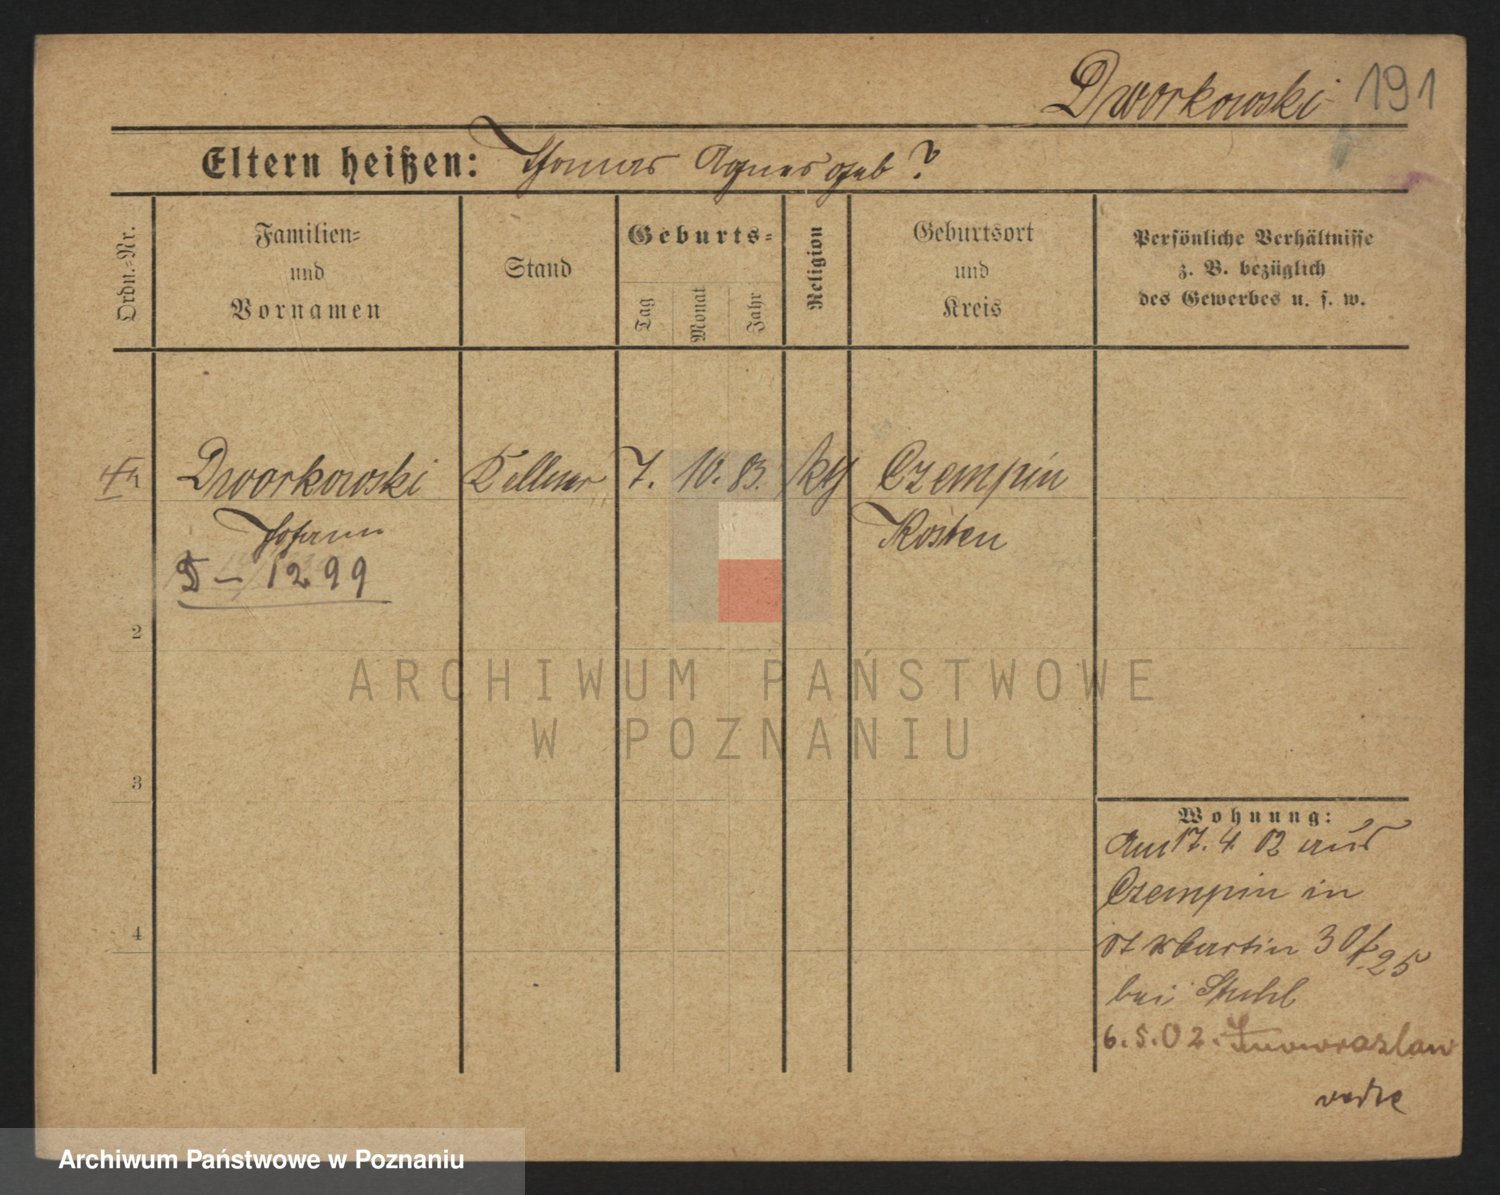 Dworkowski 191
Eltern heißen: Thomas Agnes geb ?
Ordn.-Nr.
Familien-
und
Vornamen
Stand
Geburts-
Tag
Monat
Jahr
Religion
Geburtsort
und
Kreis
Persönliche Verhältnisse
z. B. bezüglich
des Gewerbes u. s. w.
Dworkowski Kellner 7. 10. 83. kth Czempin
Johann Kosten
D – 1299
2
3
4
ARCHIWUM PAŃSTWOWE
W POZNANIU
Wohnung:
Am 17. 4. 02 aus
Czempin in
St Martin 30/ 25
bei
6.5.02. Inowrazlaw
Archiwum Państwowe w Poznaniu